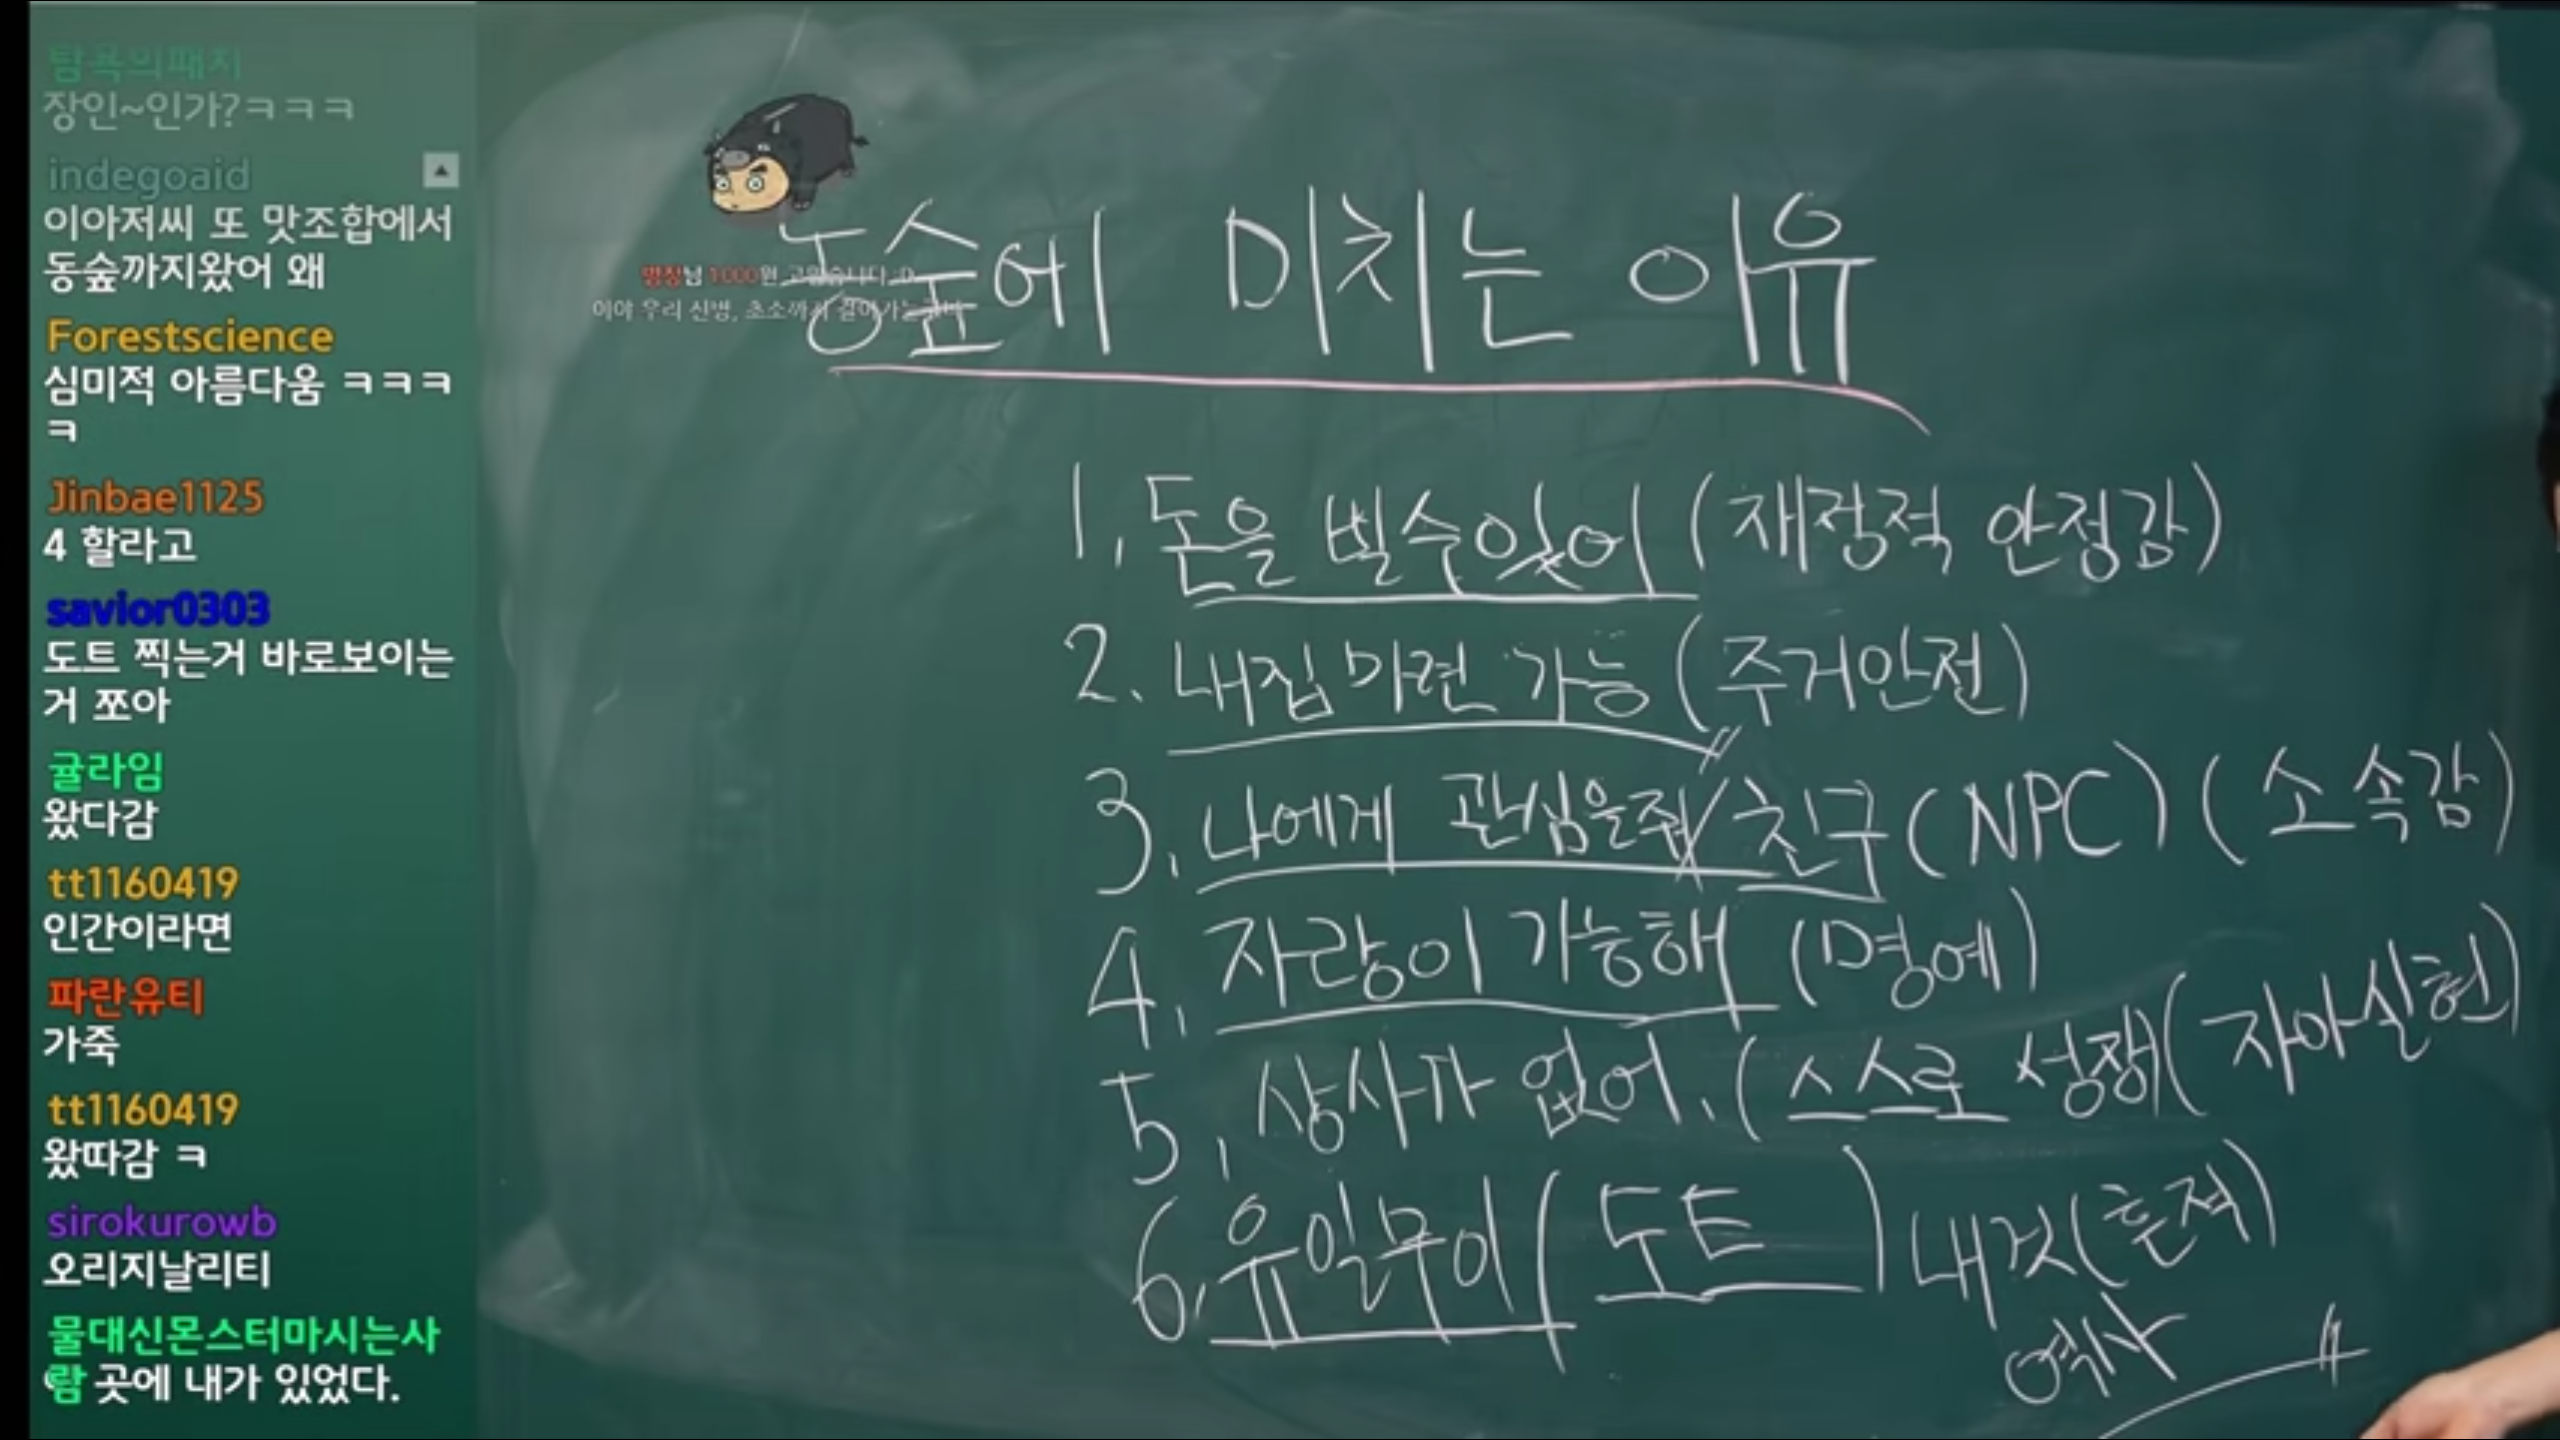 탐욕의패치
장인~인가?ㅋㅋㅋ
indegoaid
이아저씨 또 맛조합에서
동숲까지왔어 왜
Forestscience
심미적 아름다움 ㅋㅋㅋ
ㅋ
Jinbae1125
4 할라고
savior0303
도트 찍는거 바로보이는
거 쪼아
귤라임
왔다감
tt1160419
인간이라면
파란유티
가죽
tt1160419
왔따감 ㅋ
sirokurowb
오리지날리티
물대신몬스터마시는사
람 곳에 내가 있었다.
동숲에 미치는 이유
님 1000원 고맙습니다 :D
이야 우리 신병, 초소까지 걸어가는
1. 돈을 벌수있어 (재정적 안정감)
2. 내집마련 가능 (주거안전)
3. 나에게 관심을줘/친구(NPC) (소속감)
4. 자랑이 가능해 (명예)
5. 상사가 없어. (스스로 성장)(자아실현)
6. 유일무이 (도트) 내것(흔적)
역사